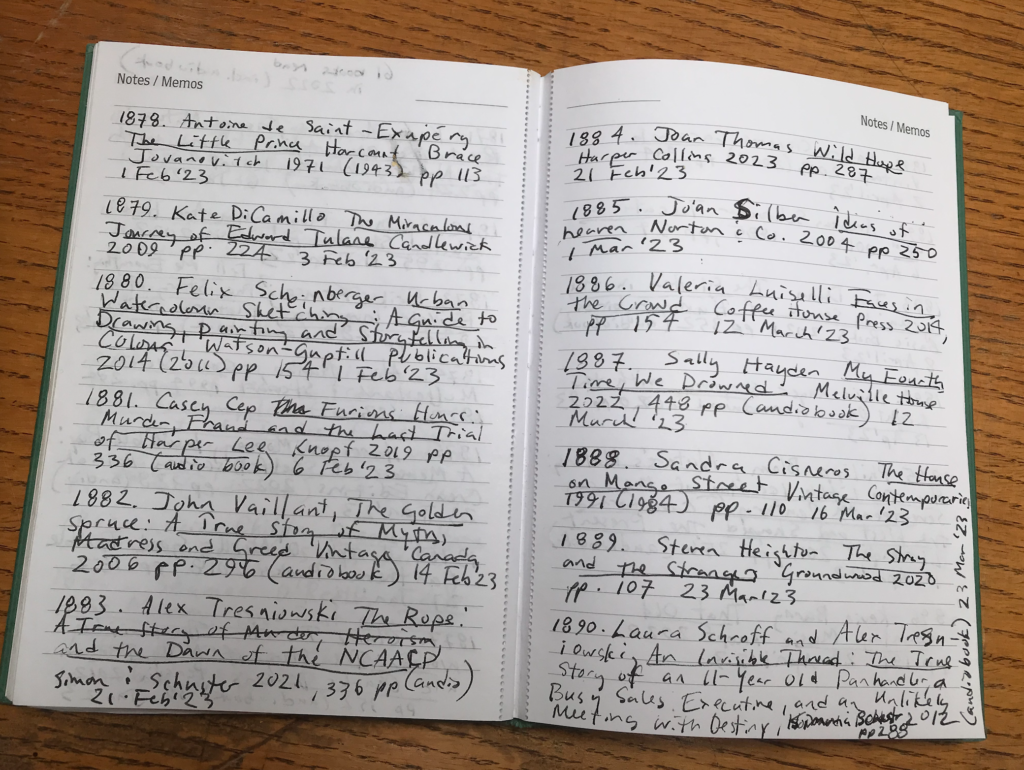 Notes / Memos
1878. Antoine de Saint-Exupéry
The Little Prince Harcourt Brace
Jovanovitch 1971 (1943) pp 113
1 Feb '23
1879. Kate DiCamillo The Miraculous
Journey of Edward Tulane Candlewick
2009 pp. 224 3 Feb '23
1880. Felix Scheinberger Urban
Watercolour Sketching: A Guide to
Drawing, Painting and Storytelling in
Colour, Watson-Guptill publications
2014 (2011) pp 154 1 Feb '23
1881. Casey Cep Furious Hours:
Murder, Fraud and the Last Trial
of Harper Lee Knopf 2019 pp
336 (audio book) 6 Feb '23
1882. John Vaillant, The Golden
Spruce: A True Story of Myth,
Madness and Greed Vintage Canada,
2006 pp. 296 (audiobook) 14 Feb 23
1883. Alex Tresniowski The Rope:
A True Story of Murder, Heroism
and the Dawn of the NCAACP
Simon & Schuster 2021, 336 pp (audio)
21 Feb '23
Notes / Memos
1884. Joan Thomas Wild Hope
Harper Collins 2023 pp. 287
21 Feb '23
1885. Joan Silber ideas of
heaven Norton & Co. 2004 pp 250
1 Mar '23
1886. Valeria Luiselli Faces in
the Crowd Coffee House Press 2014,
pp 154 12 March '23
1887. Sally Hayden My Fourth
Time, We Drowned Melville House
2022, 448 pp (audiobook) 12
March '23
1888. Sandra Cisneros The House
on Mango Street Vintage Contemporaries
1991 (1984) pp. 110 16 Mar '23
1889. Steven Heighton The Stray
and the Strangers Groundwood 2020
pp. 107 23 Mar '23
1890. Laura Schroff and Alex Tresn
iowski, An Invisible Thread: The True
Story of an 11-Year Old Panhandler, a
Busy Sales Executive, and an Unlikely
Meeting with Destiny, 2012
pp 288
(audiobook) 23 Mar '23